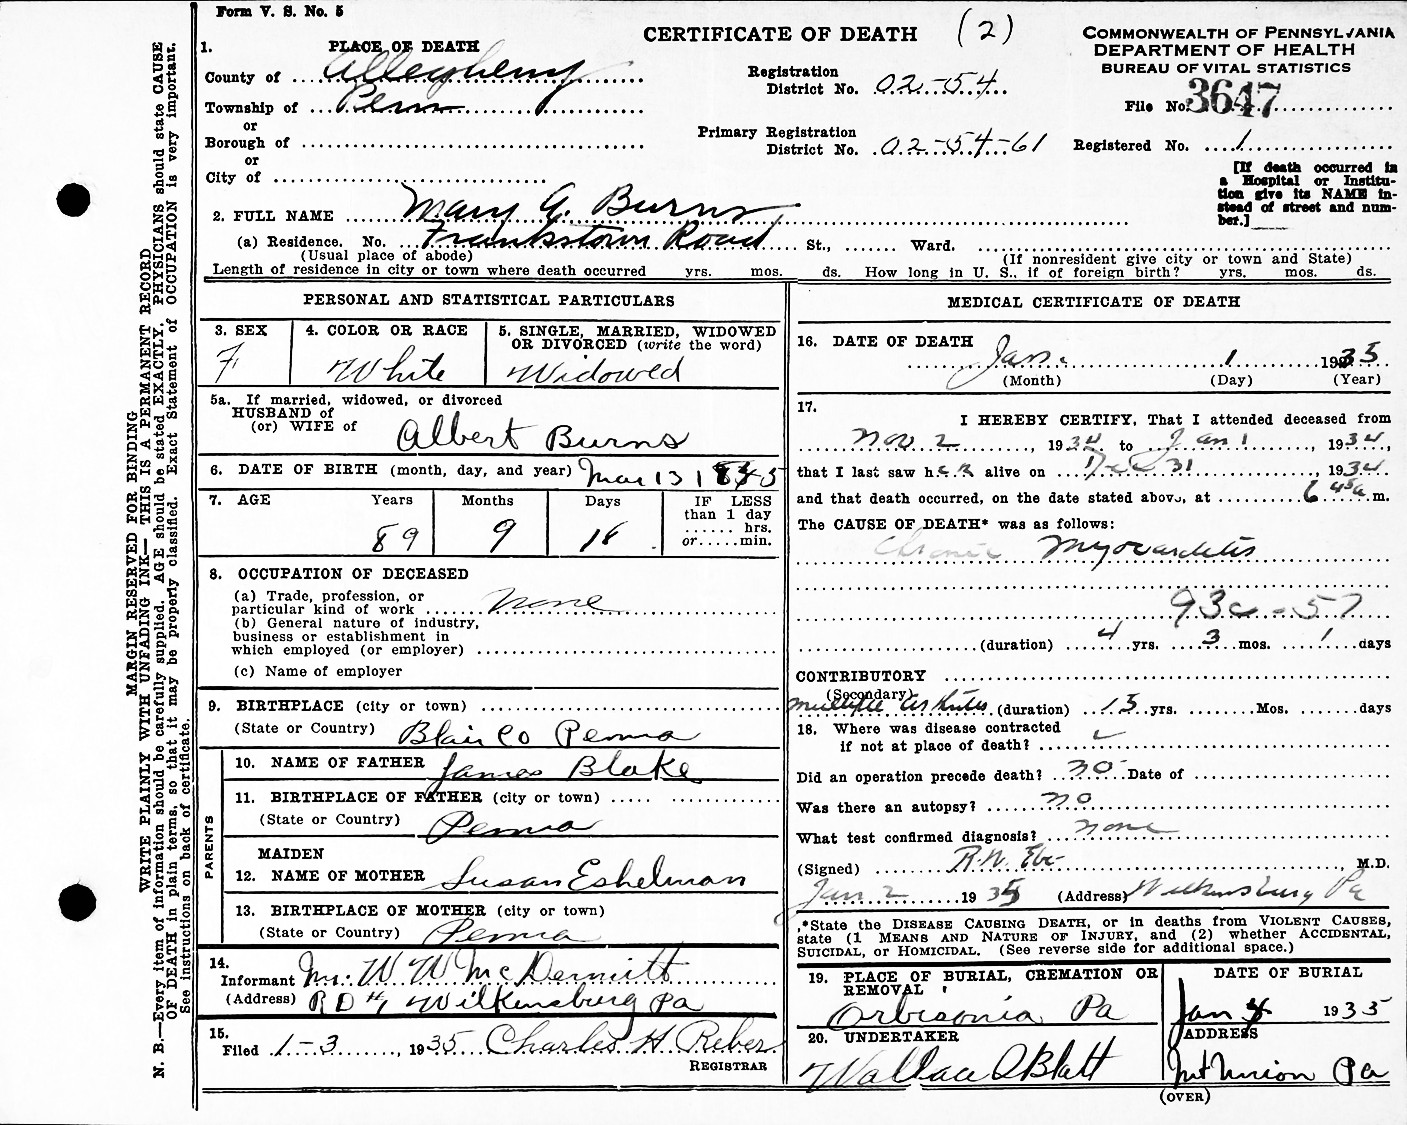 Form V. S. No. 5
CERTIFICATE OF DEATH (2)
COMMONWEALTH OF PENNSYLVANIA
DEPARTMENT OF HEALTH
BUREAU OF VITAL STATISTICS
File No. 3647
Registered No. 1
[If death occurred in a Hospital or Institution give its NAME instead of street and number.]
1. PLACE OF DEATH
County of Allegheny
Township of Penn
or
Borough of
or
City of
Registration District No. 02-54
Primary Registration District No. 02-54-61
2. FULL NAME Mary A. Burns
(a) Residence. No. Frankstown Road St., Ward.
(Usual place of abode) (If nonresident give city or town and State)
Length of residence in city or town where death occurred yrs. mos. ds. How long in U. S., if of foreign birth? yrs. mos. ds.
PERSONAL AND STATISTICAL PARTICULARS
3. SEX F
4. COLOR OR RACE White
5. SINGLE, MARRIED, WIDOWED OR DIVORCED (write the word) Widowed
5a. If married, widowed, or divorced
HUSBAND of
(or) WIFE of Albert Burns
6. DATE OF BIRTH (month, day, and year) Mar 13 1845
7. AGE Years 89 Months 9 Days 18 IF LESS than 1 day ...... hrs. or ..... min.
8. OCCUPATION OF DECEASED
(a) Trade, profession, or particular kind of work None
(b) General nature of industry, business or establishment in which employed (or employer)
(c) Name of employer
9. BIRTHPLACE (city or town)
(State or Country) Blair Co Penna
PARENTS
10. NAME OF FATHER James Blake
11. BIRTHPLACE OF FATHER (city or town)
(State or Country) Penna
12. MAIDEN NAME OF MOTHER Susan Eshelman
13. BIRTHPLACE OF MOTHER (city or town)
(State or Country) Penna
14.
Informant Mr. W W McDermitt
(Address) R D #1 Wilkinsburg Pa
15.
Filed 1-3, 1935 Charles H Reber
REGISTRAR
MEDICAL CERTIFICATE OF DEATH
16. DATE OF DEATH Jan. 1 1935
(Month) (Day) (Year)
17.
I HEREBY CERTIFY, That I attended deceased from
Nov. 2, 1934 to Jan 1, 1934,
that I last saw her alive on Dec 31, 1934
and that death occurred, on the date stated above, at 6 45a m.
The CAUSE OF DEATH* was as follows:
Chronic Myocarditis
93c-57
(duration) 4 yrs. 3 mos. 1 days
CONTRIBUTORY
(Secondary)
multiple arthritis (duration) 15 yrs. Mos. days
18. Where was disease contracted
if not at place of death?
Did an operation precede death? no Date of
Was there an autopsy? no
What test confirmed diagnosis? none
(Signed) R. W., M.D.
Jan 2 1935 (Address) Wilkinsburg Pa
*State the DISEASE CAUSING DEATH, or in deaths from VIOLENT CAUSES, state (1 MEANS AND NATURE OF INJURY, and (2) whether ACCIDENTAL, SUICIDAL, or HOMICIDAL. (See reverse side for additional space.)
19. PLACE OF BURIAL, CREMATION OR REMOVAL
Orbisonia Pa
DATE OF BURIAL
Jan 4 1935
20. UNDERTAKER
Wallace Blatt
ADDRESS
Mt Union Pa
(OVER)
MARGIN RESERVED FOR BINDING
WRITE PLAINLY WITH UNFADING INK— THIS IS A PERMANENT RECORD
N. B.—Every item of information should be carefully supplied. AGE should be stated EXACTLY. PHYSICIANS should state CAUSE
OF DEATH in plain terms, so that it may be properly classified. Exact Statement of OCCUPATION is very important.
See instructions on back of certificate.